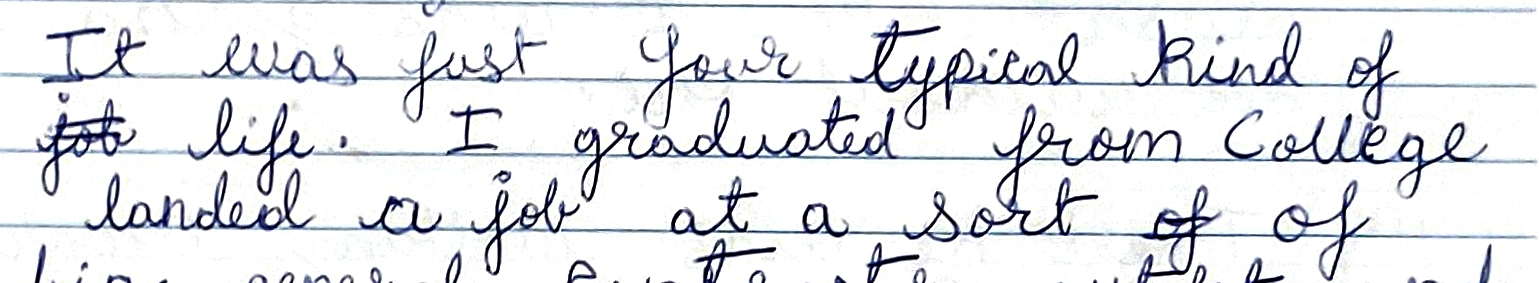 It was just your typical kind of
job life. I graduated from College
landed a job at a sort of of